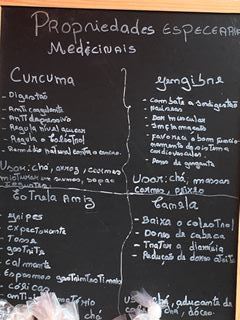 Propriedades Especiaria
Medicinais
Curcuma
- Digestão
- Anti coagulante
- Antidepressivo
- Regula nivel açucar
- Regula o Colestrol
- Remédio natural contra o cancro.
Usar: chá, arroz, carnes
Gengibre
- Combate a indigestão
- Nauseas
- Dor muscular
- Inflamação
- Favorece o bom funcio-
namento do sistema
cardiovascular
- Dores de garganta
Usar: chá, massas
carnes, peixe
Estrela Aniz
- Gripes
- expectorante
- Tosse
- gastrite
- calmante
- Espasmos gastrointestinais
- cólicas
Canela
- Baixa o colestrol
- Dores de cabeça
- Tratar a diarreia
- Redução de dores
chá, adoçante de
chá, doces.